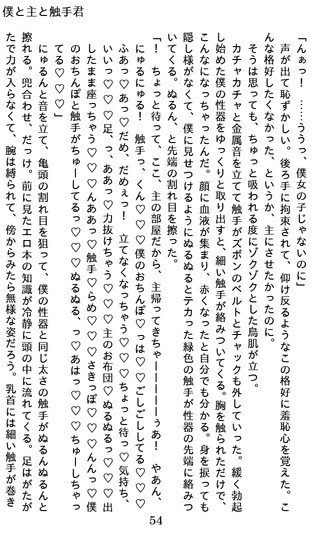 僕と主と触手君
「んぁっ！　……ううっ、僕女の子じゃないのに」
　声が出て恥ずかしい。後ろ手に拘束されて、仰け反るようなこの格好に羞恥心を覚えた。こ
んな格好したくなかった、というか、主にさせたかったのに。
　そうは思っても、ちゅっと吸われる度にゾクゾクとした鳥肌が立つ。
　カチャカチャと金属音を立てて触手がズボンのベルトとチャックも外していった。緩く勃起
し始めた僕の性器をゆっくりと取り出すと、細い触手が絡みついてくる。胸を触られただけで、
こんなになっちゃったんだ。顔に血液が集まり、赤くなったと自分でも分かる。身を捩っても
隠し様がなくて、僕に見せつけるようにぬるぬるとテカった緑色の触手が性器の先端に絡みつ
いてくる。ぬるん、と先端の割れ目を擦った。
「！　ちょっと待って、ここ、主の部屋だから、主帰ってきちゃーーーーーぅあ！　やあん、
にゅるにゅる！　触手っ、くん♡♡♡僕のおちんぽ♡っは♡♡♡ごしごししてる♡♡♡
ふあっ♡あっ♡だめ、だめぇっ！　立てなくなっちゃう♡♡♡ちょっと待っ♡気持ち、
いいっ♡♡♡足、っ、ああっ♡力抜けちゃう♡♡♡主のお布団♡ぬるぬるっ♡♡♡出
したまま座っちゃう♡♡♡んああっ♡触手♡らめ♡♡♡さきっぽ♡♡♡んんっ♡僕
のおちんぽと触手がちゅーしてるっ♡♡♡ぬるぬる、っ♡あはっ♡♡♡ちゅーしちゃっ
てる♡♡♡」
　にゅるんと音を立て、亀頭の割れ目を狙って、僕の性器と同じ太さの触手がぬるんぬるんと
擦れる。兜合わせ、だっけ。前に見たエロ本の知識が冷静に頭の中に流れてくる。足はがたが
たで力が入らなくて、腕は縛られて、傍からみたら無様な姿だろう。乳首には細い触手が巻き
54